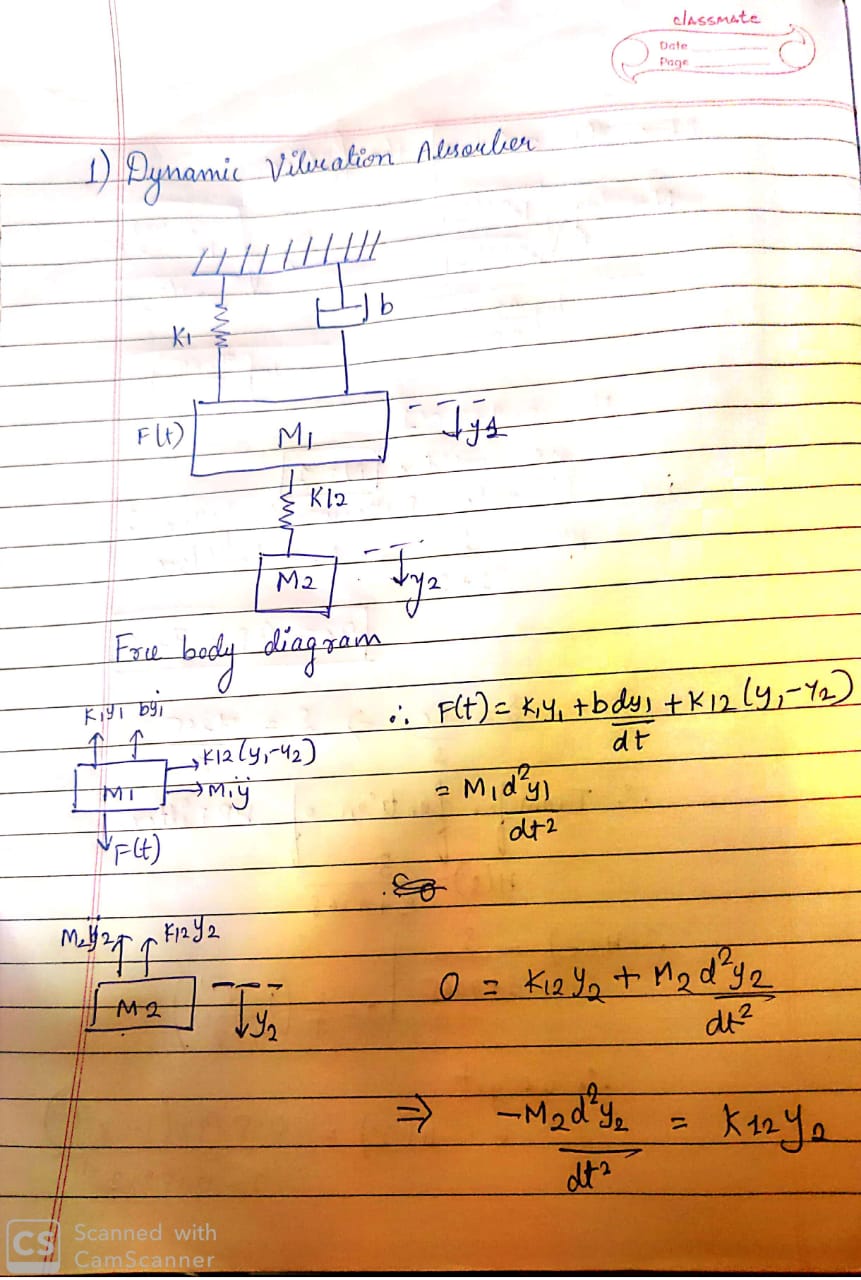 classmate
Date
Page
1) Dynamic Vibration Absorber
K1
b
F(t)
M1
y1
K12
M2
y2
Free body diagram
K1y1 bẏ1
K12(y1-y2)
M1
m1ÿ
F(t)
∴ F(t) = K1y1 + b dy1/dt + K12(y1-y2)
= M1 d²y1/dt2
M2ÿ2 K12y2
M2
y2
0 = K12 y2 + M2 d²y2/dt²
⇒ -M2 d²y2/dt² = K12 y2
CS Scanned with
CamScanner